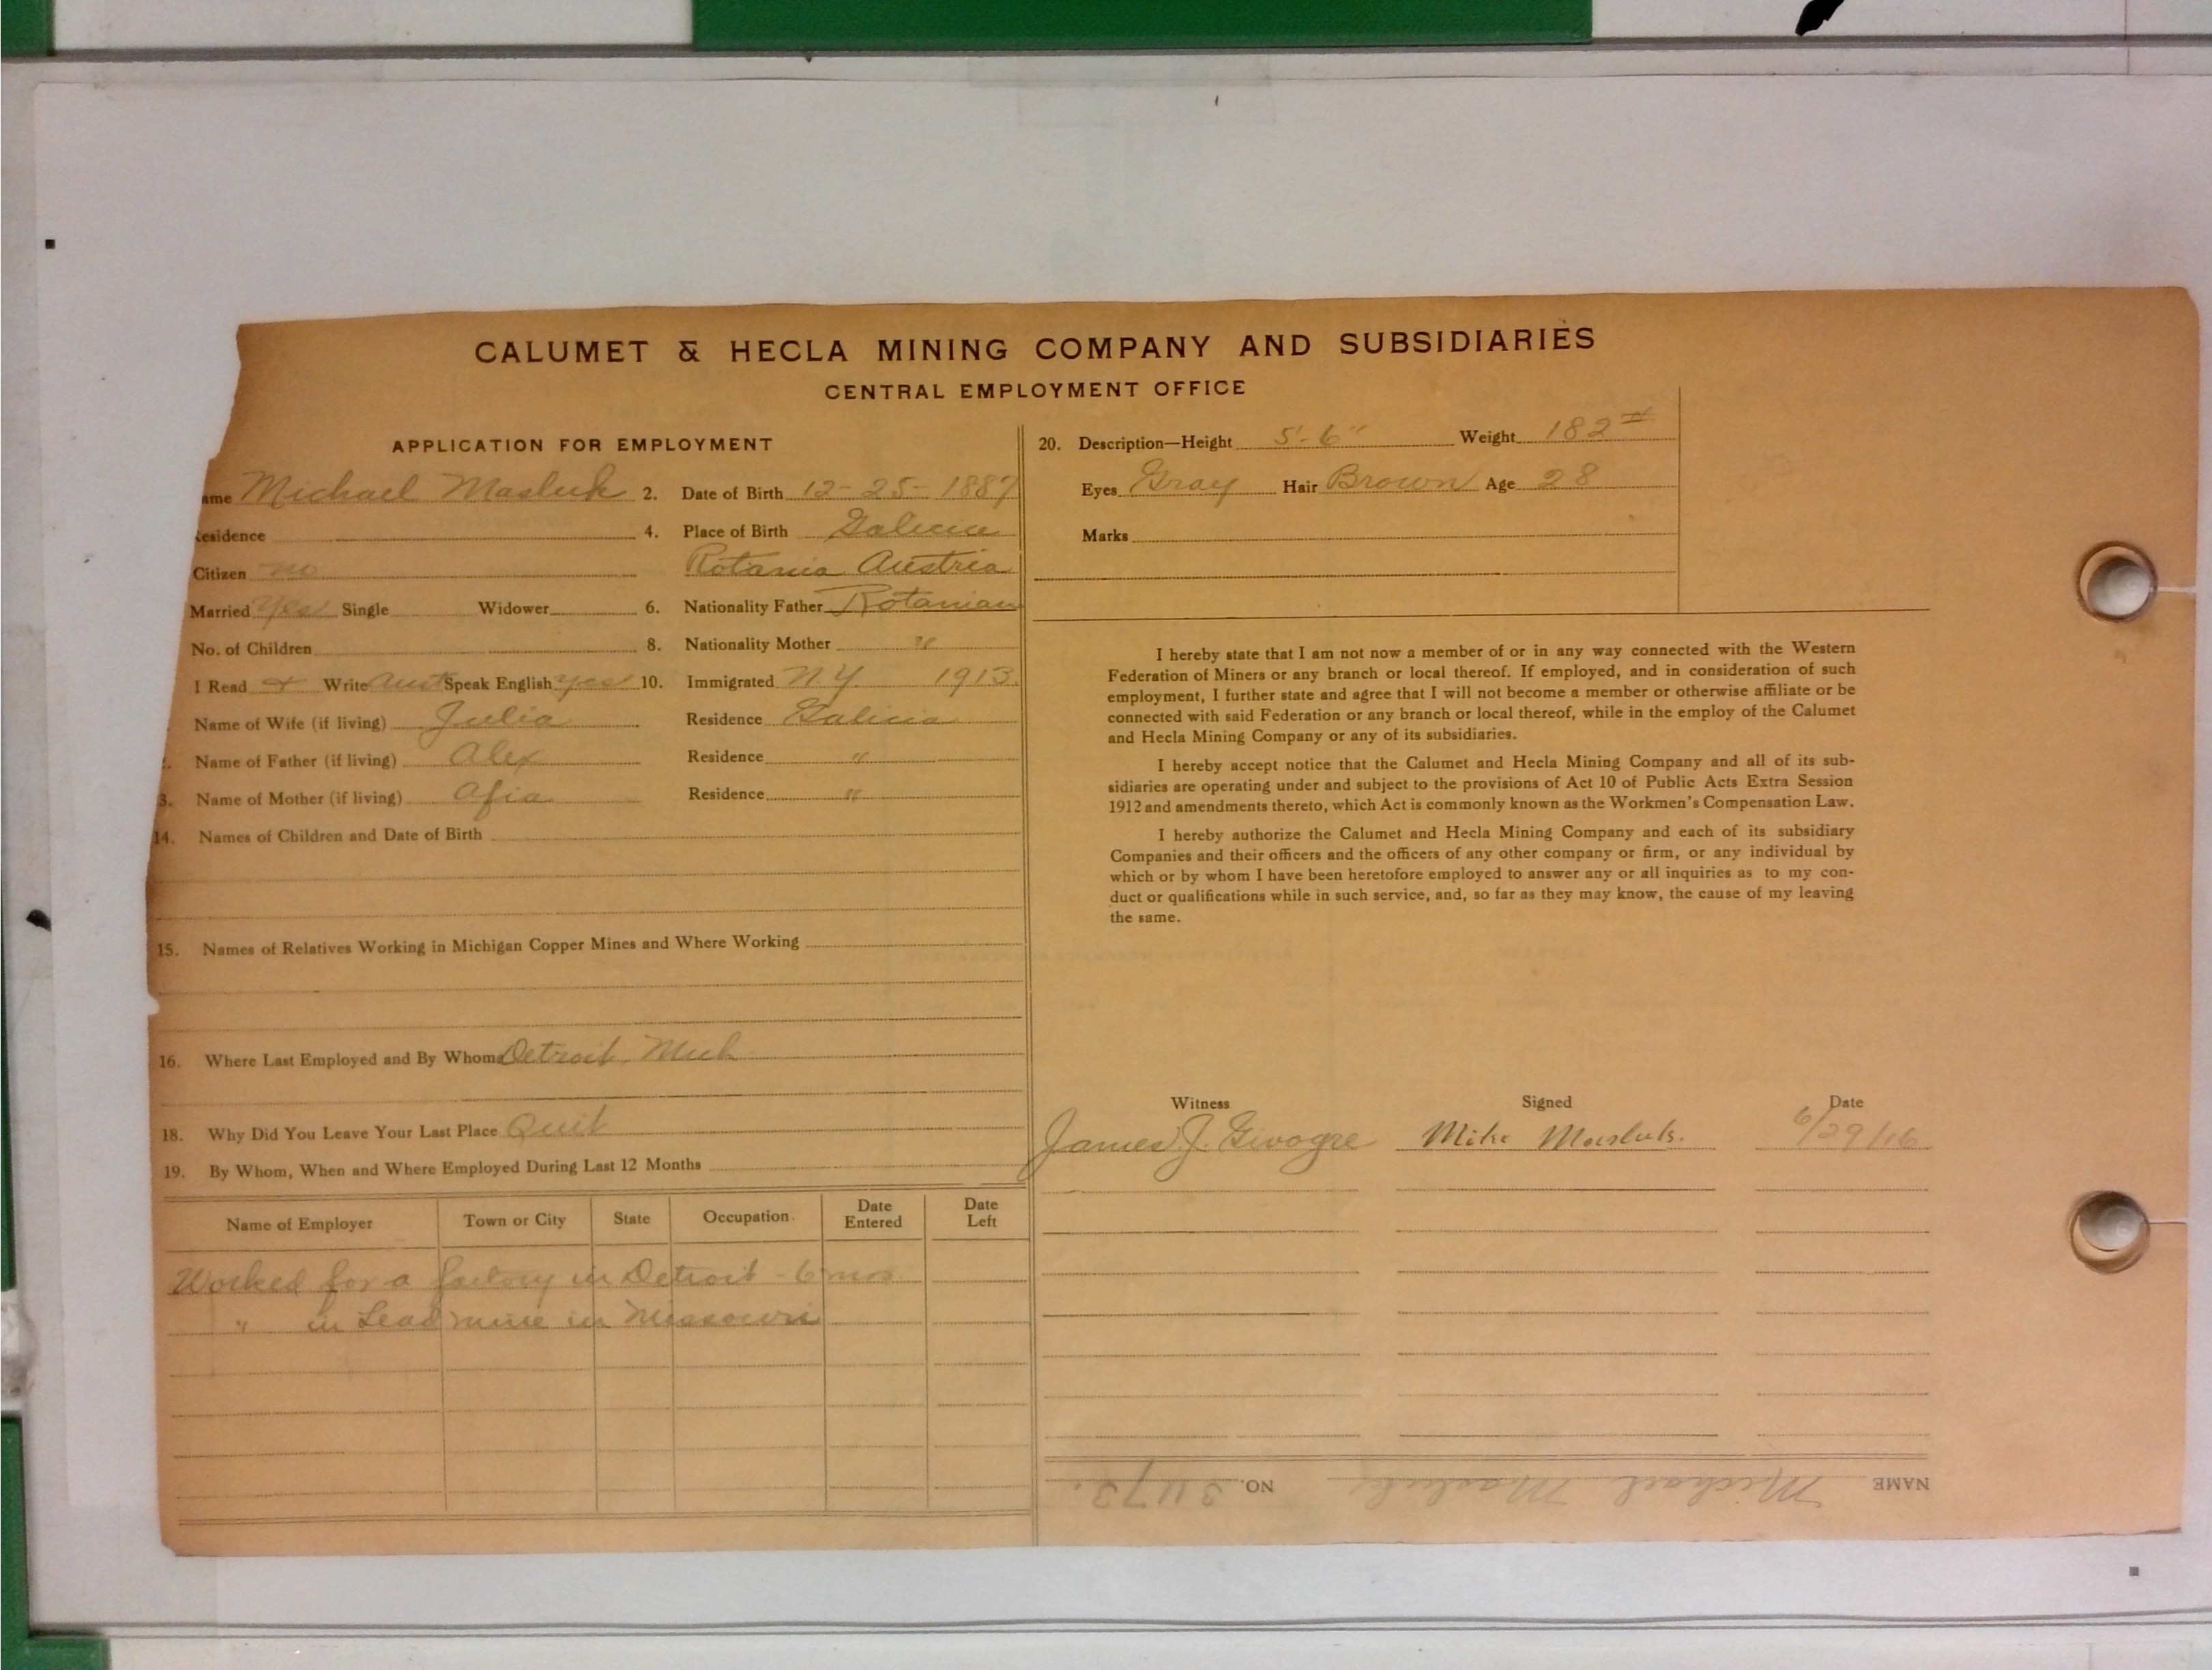 CALUMET & HECLA MINING COMPANY AND SUBSIDIARIES
CENTRAL EMPLOYMENT OFFICE
APPLICATION FOR EMPLOYMENT
ame Michael Masluk 2. Date of Birth 12-25-1887
esidence 4. Place of Birth Galicia
Rotania Austria
Citizen no
Married Yes Single Widower 6. Nationality Father Rotanian
No. of Children 8. Nationality Mother "
I Read & Write Aust Speak English yes 10. Immigrated N.Y. 1913
Name of Wife (if living) Julia Residence Galicia
Name of Father (if living) Alex Residence "
3. Name of Mother (if living) Afia Residence "
14. Names of Children and Date of Birth
15. Names of Relatives Working in Michigan Copper Mines and Where Working
16. Where Last Employed and By Whom Detroit Mich
18. Why Did You Leave Your Last Place Quit
19. By Whom, When and Where Employed During Last 12 Months
Name of Employer Town or City State Occupation Date Entered Date Left
Worked for a factory in Detroit - 6 mos
" in Lead mine in Missouri
20. Description—Height 5'-6" Weight 182#
Eyes Gray Hair Brown Age 28
Marks
I hereby state that I am not now a member of or in any way connected with the Western
Federation of Miners or any branch or local thereof. If employed, and in consideration of such
employment, I further state and agree that I will not become a member or otherwise affiliate or be
connected with said Federation or any branch or local thereof, while in the employ of the Calumet
and Hecla Mining Company or any of its subsidiaries.
I hereby accept notice that the Calumet and Hecla Mining Company and all of its sub-
sidiaries are operating under and subject to the provisions of Act 10 of Public Acts Extra Session
1912 and amendments thereto, which Act is commonly known as the Workmen's Compensation Law.
I hereby authorize the Calumet and Hecla Mining Company and each of its subsidiary
Companies and their officers and the officers of any other company or firm, or any individual by
which or by whom I have been heretofore employed to answer any or all inquiries as to my con-
duct or qualifications while in such service, and, so far as they may know, the cause of my leaving
the same.
Witness Signed Date
James J. Mike Masluk. 6/29/16
NAME Michael Masluk NO.